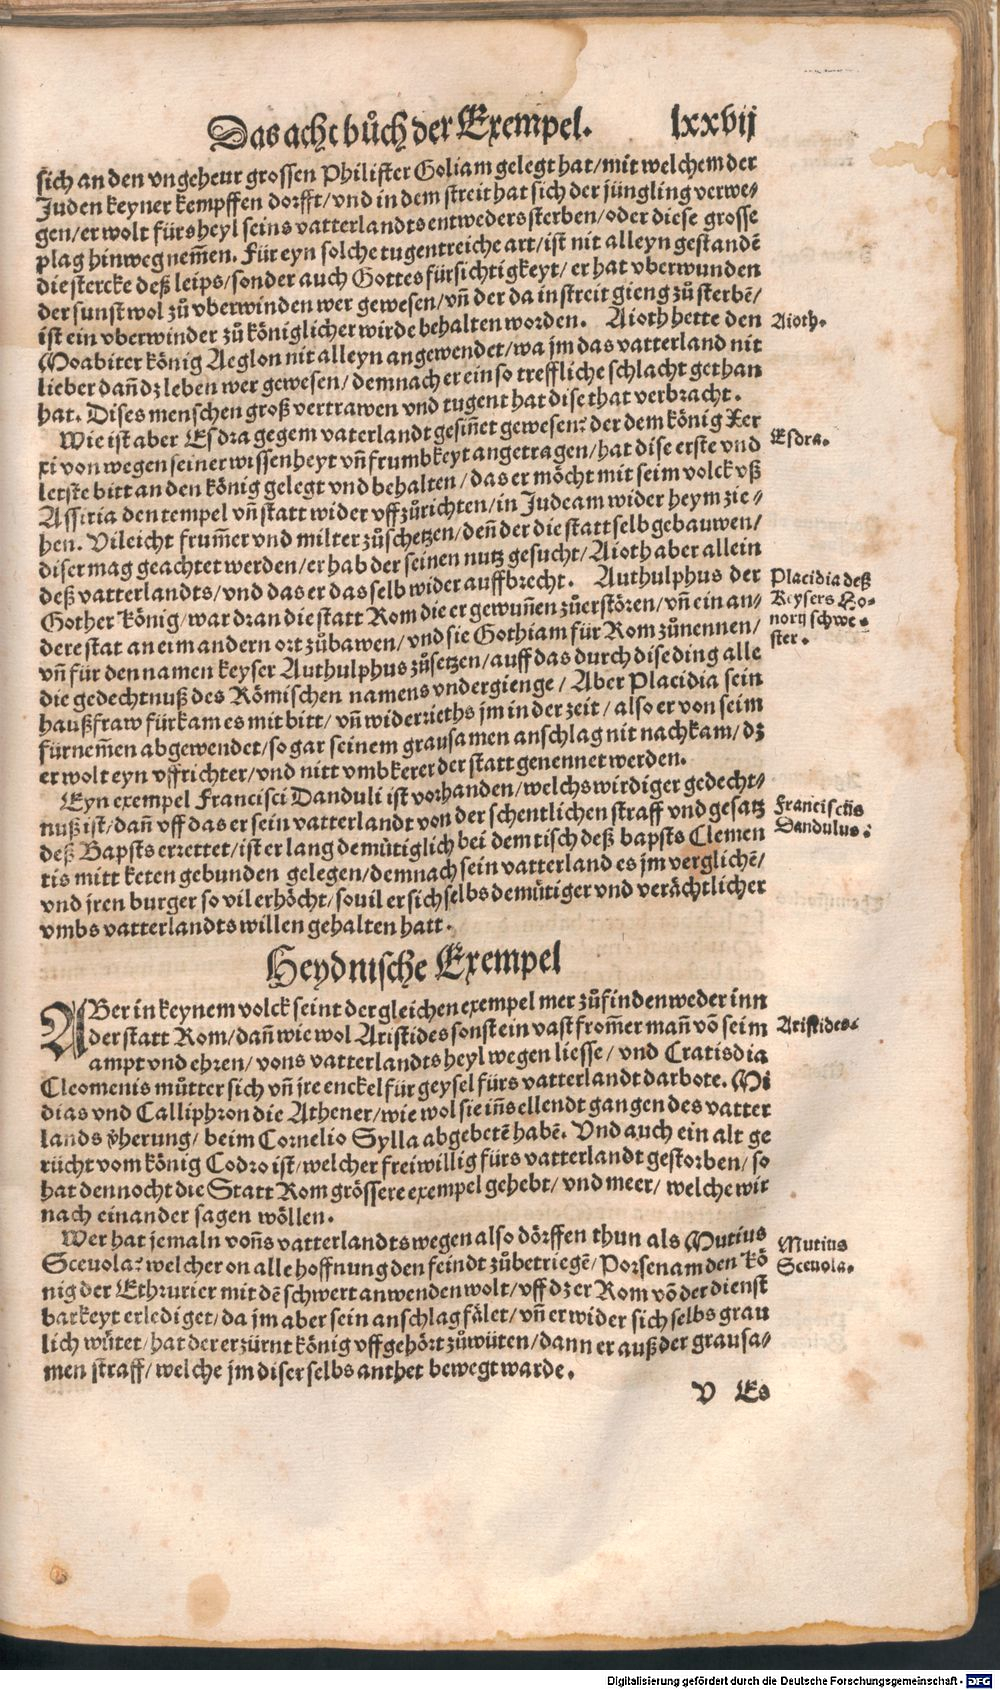 Das acht bůch der Exempel. lxxvij
sich an den vngeheur grossen Philister Goliam gelegt hat/mit welchem der
Juden keyner kempffen dorfft/vnd in dem streit hat sich der jüngling verwe-
gen/er wolt fürs heyl seins vatterlandts entweders sterben/oder diese grosse
plag hinweg nem̃en. Für eyn solche tugentreiche art/ist nit alleyn gestandẽ
die stercke deß leips/sonder auch Gottes fürsichtigkeyt/er hat vberwunden
der sunst wol zů vberwinden wer gewesen/vñ der da in streit gieng zů sterbẽ/
ist ein vberwinder zů königlicher wirde behalten worden. Aioth hette den
Aioth.
Moabiter könig Aeglon nit alleyn angewendet/wa jm das vatterland nit
lieber dañ dz leben wer gewesen/demnach er ein so treffliche schlacht gethan
hat. Dises menschen groß vertrawen vnd tugent hat dise that verbracht.
Wie ist aber Esdra gegem vaterlandt gesiñet gewesen? der dem könig Xer
Esdra.
xi von wegen seiner wissenheyt vñ frumbkeyt angetragen/hat dise erste vnd
letste bitt an den könig gelegt vnd behalten/das er möcht mit seim volck vß
Assiria den tempel vñ statt wider vffzůrichten/in Judeam wider heym zie-
hen. Vileicht frum̃er vnd milter zůschetzen/deñ der die statt selb gebauwen/
diser mag geachtet werden/er hab der seinen nutz gesucht/Aioth aber allein
deß vatterlandts/vnd das er das selb wider auffbrecht. Authulphus der
Placidia deß
Keysers Ho-
norij schwe-
ster.
Gother könig/war dran die statt Rom die er gewuñen zůerstören/vñ ein an-
dere stat an eim andern ort zůbawen/vnd sie Gothiam für Rom zůnennen/
vñ für den namen keyser Authulphus zůsetzen/auff das durch dise ding alle
die gedechtnuß des Römischen namens vndergienge/Aber Placidia sein
haußfraw fürkam es mit bitt/vñ widerrieths jm in der zeit/also er von seim
fürnem̃en abgewendet/so gar seinem grausamen anschlag nit nachkam/dz
er wolt eyn vffrichter/vnd nitt vmbkerer der statt genennet werden.
Eyn exempel Francisci Danduli ist vorhanden/welchs wirdiger gedecht-
Franciscus
Dandulus.
nuß ist/dañ vff das er sein vatterlandt von der schentlichen straff vnd gesatz
deß Bapsts errettet/ist er lang demütiglich bei dem tisch deß bapsts Clemen
tis mitt keten gebunden gelegen/demnach sein vatterland es jm verglichẽ/
vnd jren burger so vil erhöcht/souil er sich selbs demütiger vnd verächtlicher
vmbs vatterlandts willen gehalten hatt.
Heydnische Exempel
ABer in keynem volck seint dergleichen exempel mer zůfinden weder inn
der statt Rom/dañ wie wol Aristides sonst ein vast from̃er mañ võ seim
Aristides.
ampt vnd ehren/vons vatterlandts heyl wegen liesse/vnd Cratisdia
Cleomenis můtter sich vñ jre enckel für geysel fürs vatterlandt darbote. Mi
dias vnd Calliphron die Athener/wie wol sie iñs ellendt gangen des vatter
lands v̈herung/beim Cornelio Sylla abgebetẽ habẽ. Vnd auch ein alt ge
rücht vom könig Codro ist/welcher freiwillig fürs vatterlandt gestorben/so
hat dennocht die Statt Rom grössere exempel gehebt/vnd meer/welche wir
nach einander sagen wöllen.
Wer hat jemaln voñs vatterlandts wegen also dörffen thun als Mutius
Mutius
Sceuola.
Sceuola? welcher on alle hoffnung den feindt zůbetriegẽ/Porsenam den kö
nig der Ethrurier mit dẽ schwert anwenden wolt/vff dz er Rom võ der dienst
barkeyt erlediget/da jm aber sein anschlag fälet/vñ er wider sich selbs grau
lich wütet/hat der erzürnt könig vffgehört zůwüten/dann er auß der grausa-
men straff/welche jm diser selbs anthet bewegt warde.
V Es
Digitalisierung gefördert durch die Deutsche Forschungsgemeinschaft - DFG